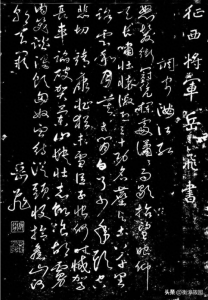 征西將軍岳飛書
調寄滿江紅
怒髮衝冠憑欄處瀟瀟雨歇抬望眼仰
天長嘯壯懷激烈三十功名塵與土八千里
路雲和月莫等閒白了少年頭空
悲切靖康恥猶未雪臣子恨何時滅駕
長車踏破賀蘭山缺壯志飢餐胡虜
肉笑談渴飲匈奴血待從頭收拾舊山河
朝天闕
岳飛
头条